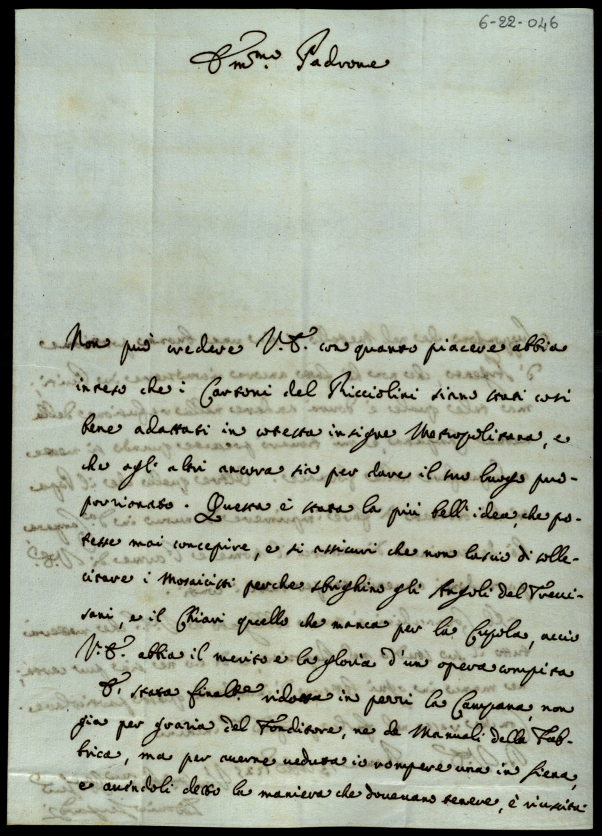 6-22-046
Em.mo Padrone
Non può credere V.E. con quanto piacere abbia
inteso che i Cartoni del Ricciolini siano stati così
bene adattati in cotesta insigne Metropolitana, e
che agl'altri ancora sia per dare il suo luogo pro-
porzionato. Questa è stata la più bell'idea, che po-
tesse mai concepire, e si assicuri che non lascio di solle-
citare i Mosaicisti perche sbrighino gli Angoli del Trevi-
sani, e il Chiari quello che manca per la Cupola, acciò
V.E. abbia il merito e la gloria d'un opera compita
E' stata finalm.te ridotta in pezzi la Campana, non
già per grazia del Fonditore, ne de Manuali della Fab-
brica, ma per averne veduta io rompere una in Siena,
e avendoli detto la maniera che dovevano tenere, è riuscita